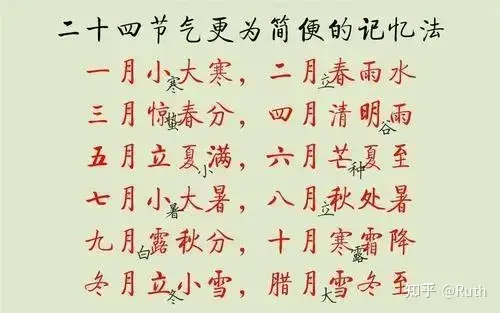 二十四节气更为简便的记忆法
一月小寒大寒，二月立春雨水
三月惊蛰春分，四月清明谷雨
五月立夏小满，六月芒种夏至
七月小暑大暑，八月立秋处暑
九月白露秋分，十月寒露霜降
冬月立冬小雪，腊月大雪冬至
知乎 @Ruth